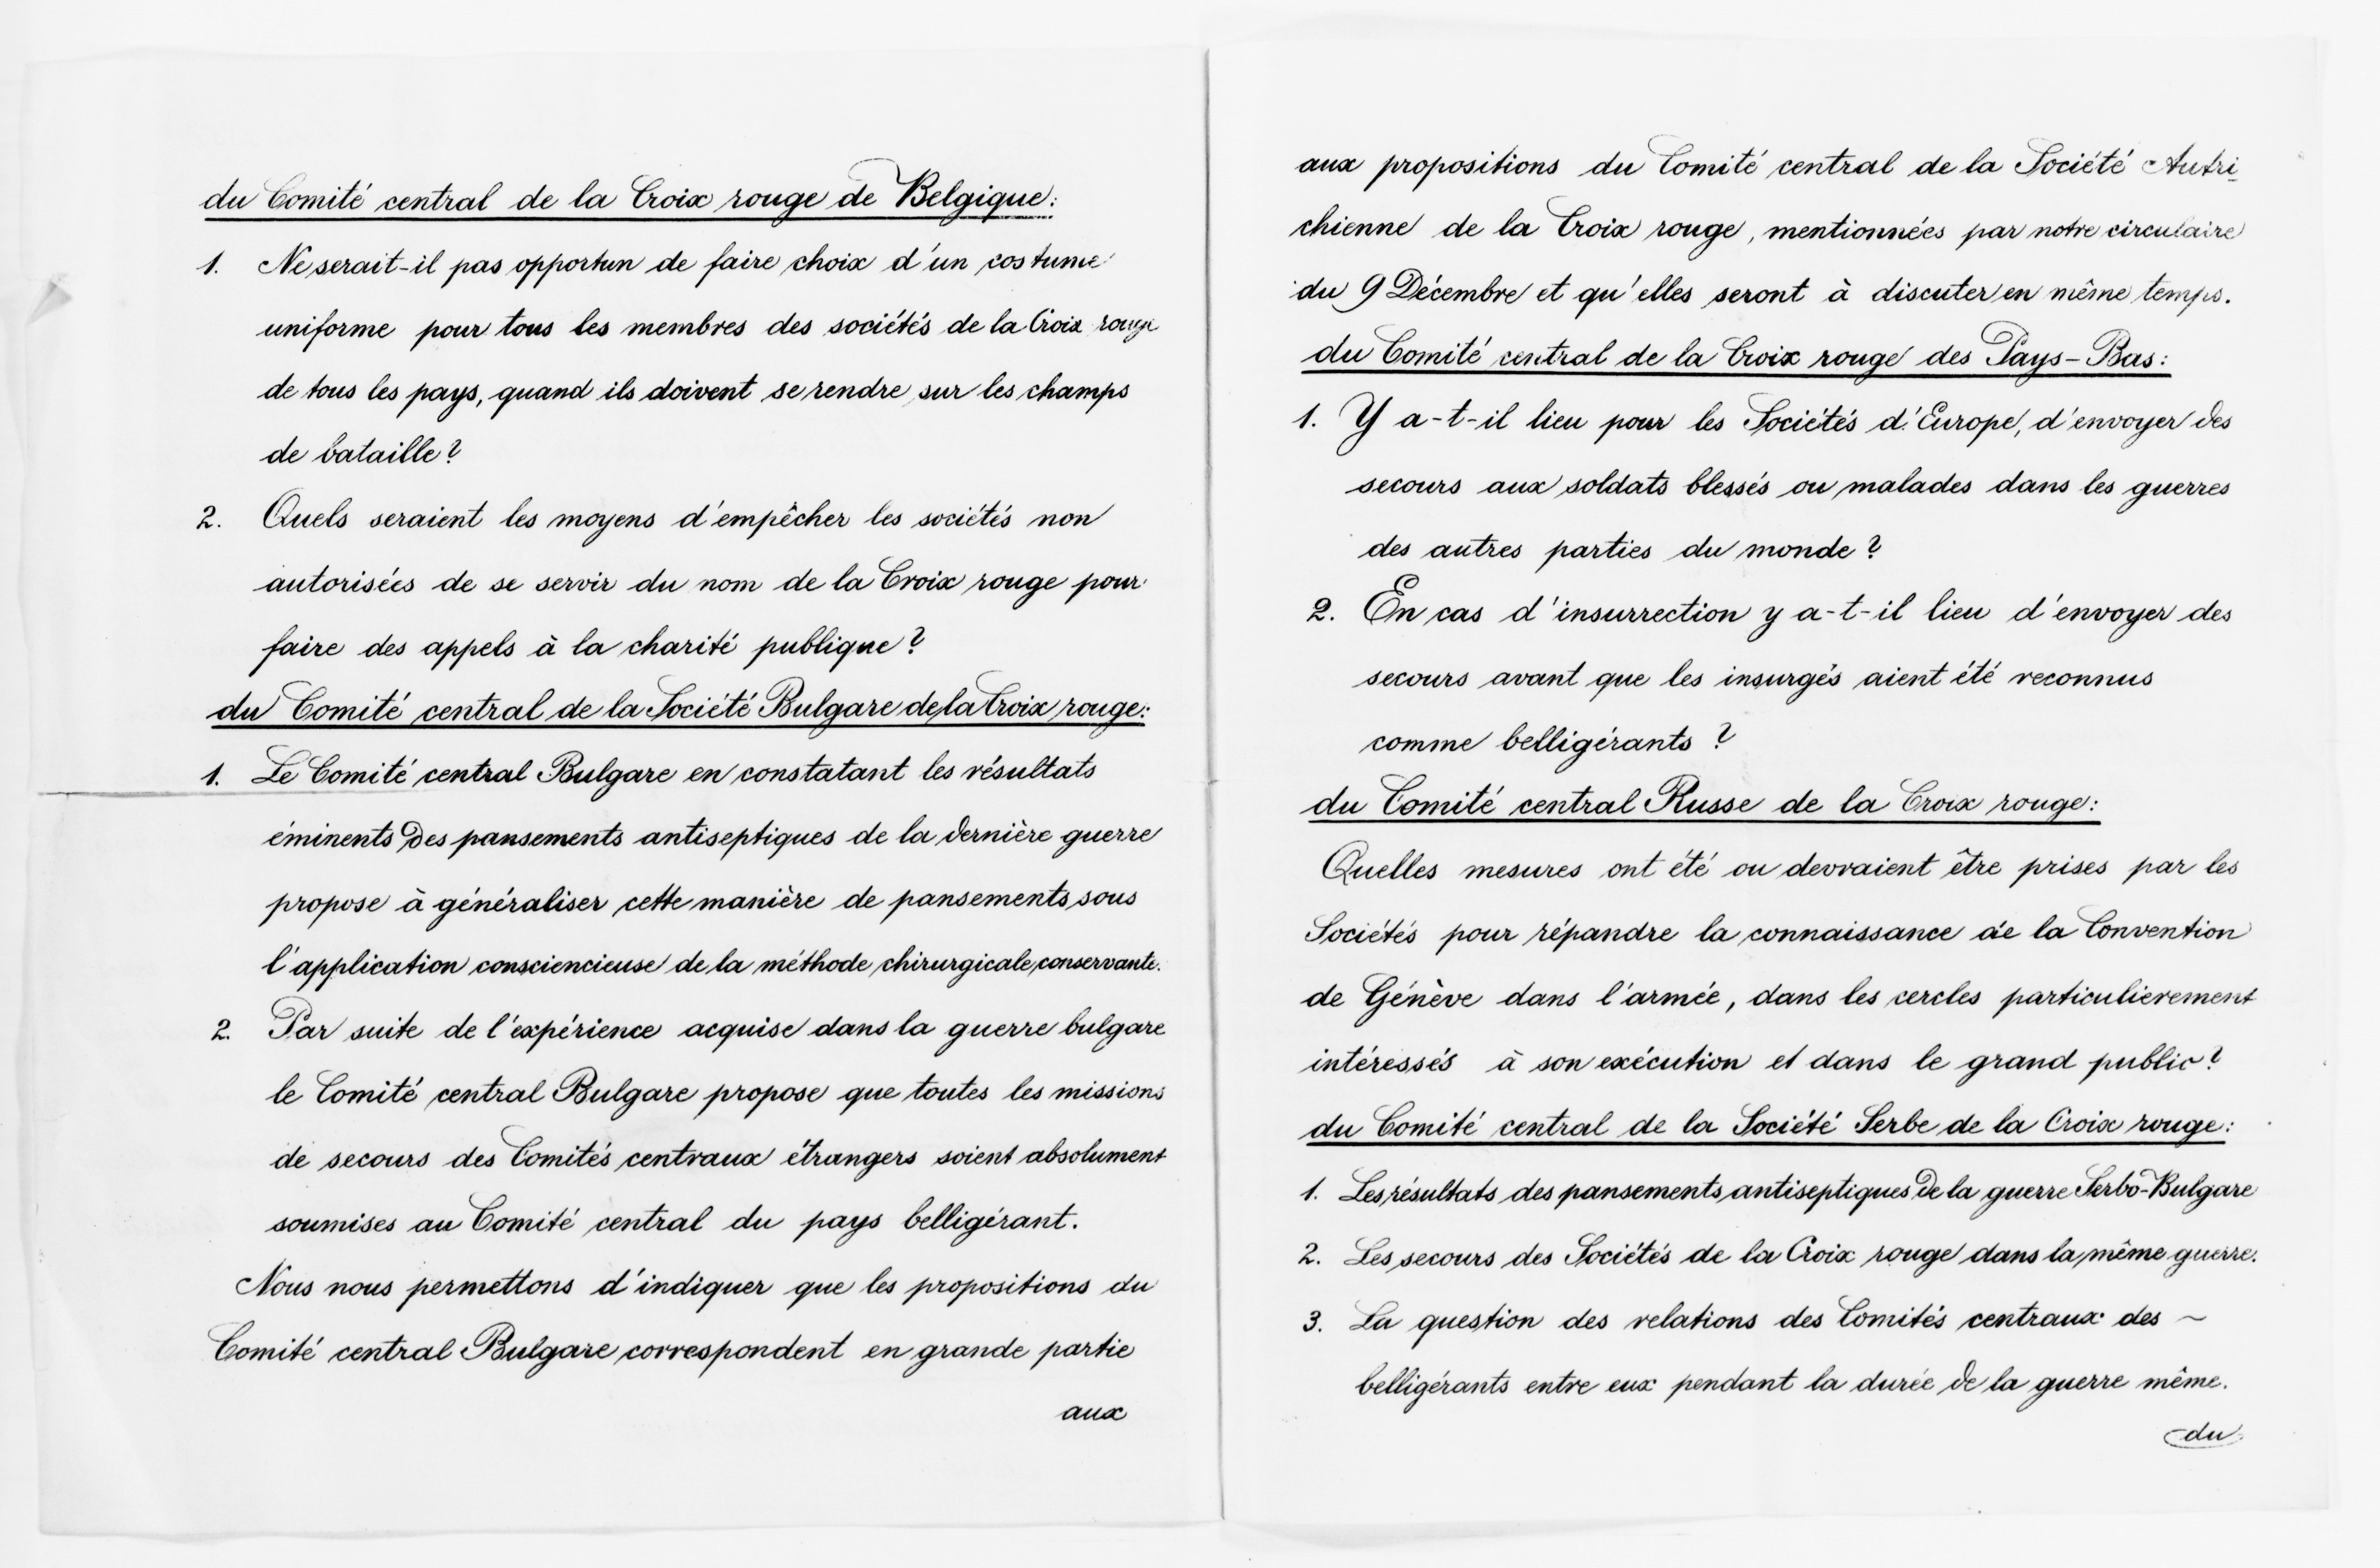 du Comité central de la Croix rouge de Belgique:
1. Ne serait-il pas opportun de faire choix d'un costume
uniforme pour tous les membres des sociétés de la Croix rouge
de tous les pays, quand ils doivent se rendre sur les champs
de bataille?
2. Quels seraient les moyens d'empêcher les sociétés non
autorisées de se servir du nom de la Croix rouge pour
faire des appels à la charité publique?
du Comité central de la Société Bulgare de la Croix rouge:
1. Le Comité central Bulgare en constatant les résultats
éminents des pansements antiseptiques de la dernière guerre
propose à généraliser cette manière de pansements sous
l'application consciencieuse de la méthode chirurgicale conservante.
2. Par suite de l'expérience acquise dans la guerre bulgare
le Comité central Bulgare propose que toutes les missions
de secours des Comités centraux étrangers soient absolument
soumises au Comité central du pays belligérant.
Nous nous permettons d'indiquer que les propositions du
Comité central Bulgare correspondent en grande partie
aux
aux propositions du Comité central de la Société Autri-
chienne de la Croix rouge, mentionnées par notre circulaire
du 9 Décembre et qu'elles seront à discuter en même temps.
du Comité central de la Croix rouge des Pays-Bas:
1. Y a-t-il lieu pour les Sociétés d'Europe, d'envoyer des
secours aux soldats blessés ou malades dans les guerres
des autres parties du monde?
2. En cas d'insurrection y a-t-il lieu d'envoyer des
secours avant que les insurgés aient été reconnus
comme belligérants?
du Comité central Russe de la Croix rouge:
Quelles mesures ont été ou devraient être prises par les
Sociétés pour répandre la connaissance de la Convention
de Génève dans l'armée, dans les cercles particulièrement
intéressés à son exécution et dans le grand public?
du Comité central de la Société Serbe de la Croix rouge:
1. Les résultats des pansements antiseptiques de la guerre Serbo-Bulgare
2. Les secours des Sociétés de la Croix rouge dans la même guerre.
3. La question des relations des Comités centraux des ~
belligérants entre eux pendant la durée de la guerre même.
du